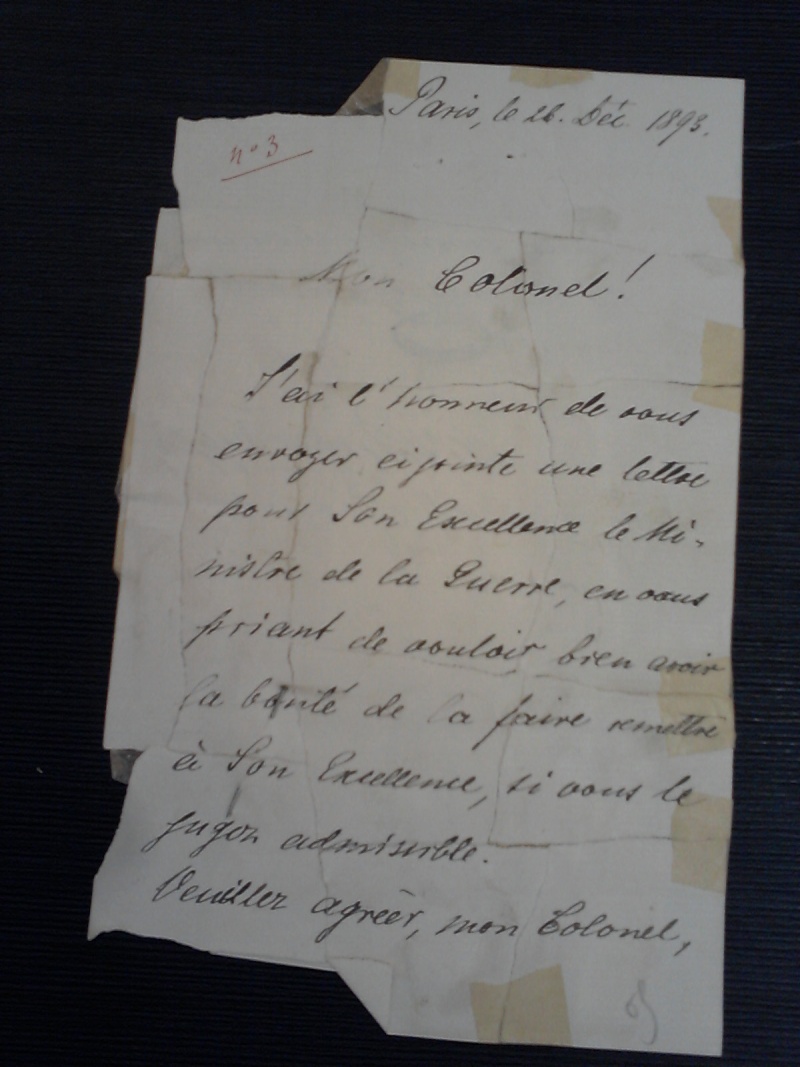 Paris, le 26. Déc 1893.
n° 3
Mon Colonel!
J'ai l'honneur de vous
envoyer ci jointe une lettre
pour Son Excellence le Mi-
nistre de la Guerre, en vous
priant de vouloir bien avoir
la bonté de la faire remettre
à Son Excellence, si vous le
jugez admissible.
Veuillez agréer, mon Colonel,